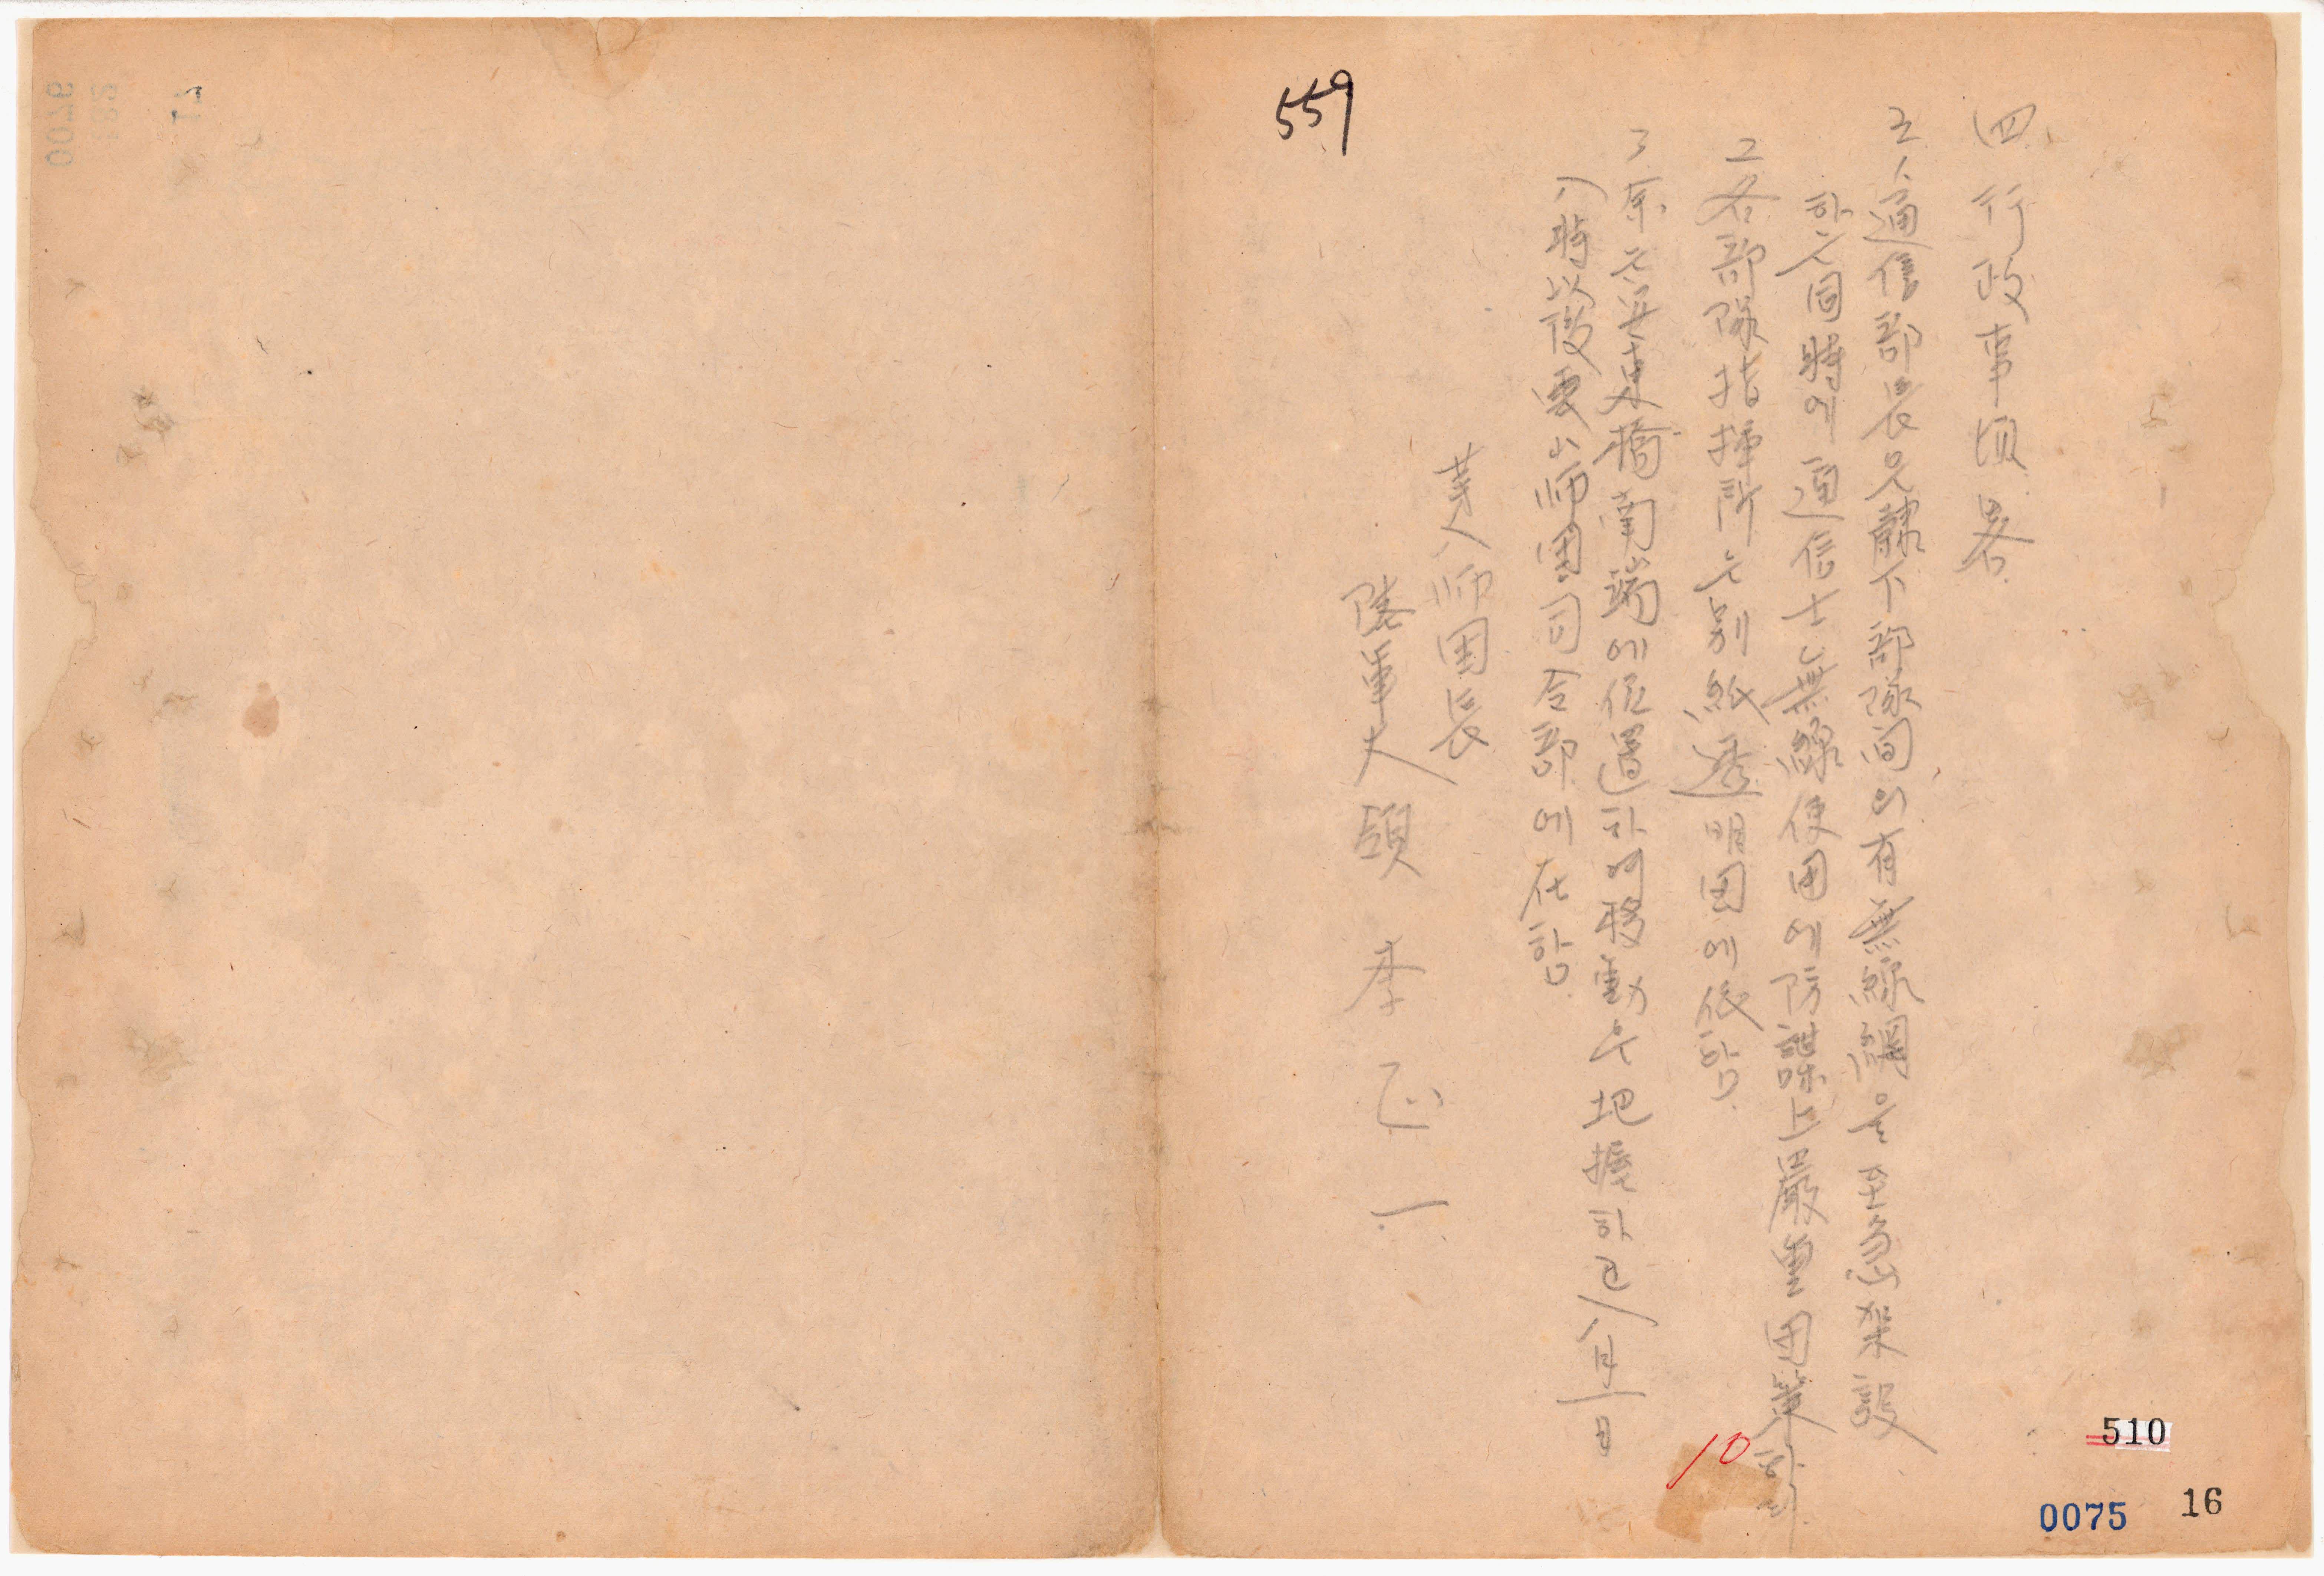 四. 行政事項 畧
五、通信部長은 隷下部隊間의 有無線網을 至急架設
하는同時에 通信士 無線使用에 防諜上 嚴重団策하
2 各部隊指揮所는 別紙透明図에 依함.
3 余는 安東橋南端에 位置하여 移動을 把握하고 八月一日
八時以後 安山 師團司令部에 在함.
第八師團長
陸軍大領 李正一
559
10
510
0075
16